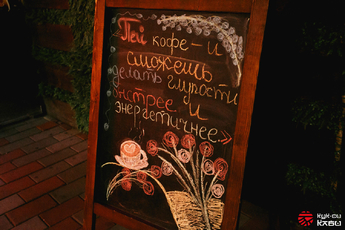 Пей кофе - и
сможешь
делать глупости
быстрее и
энергичнее»
КУК-СИ
КАБИ